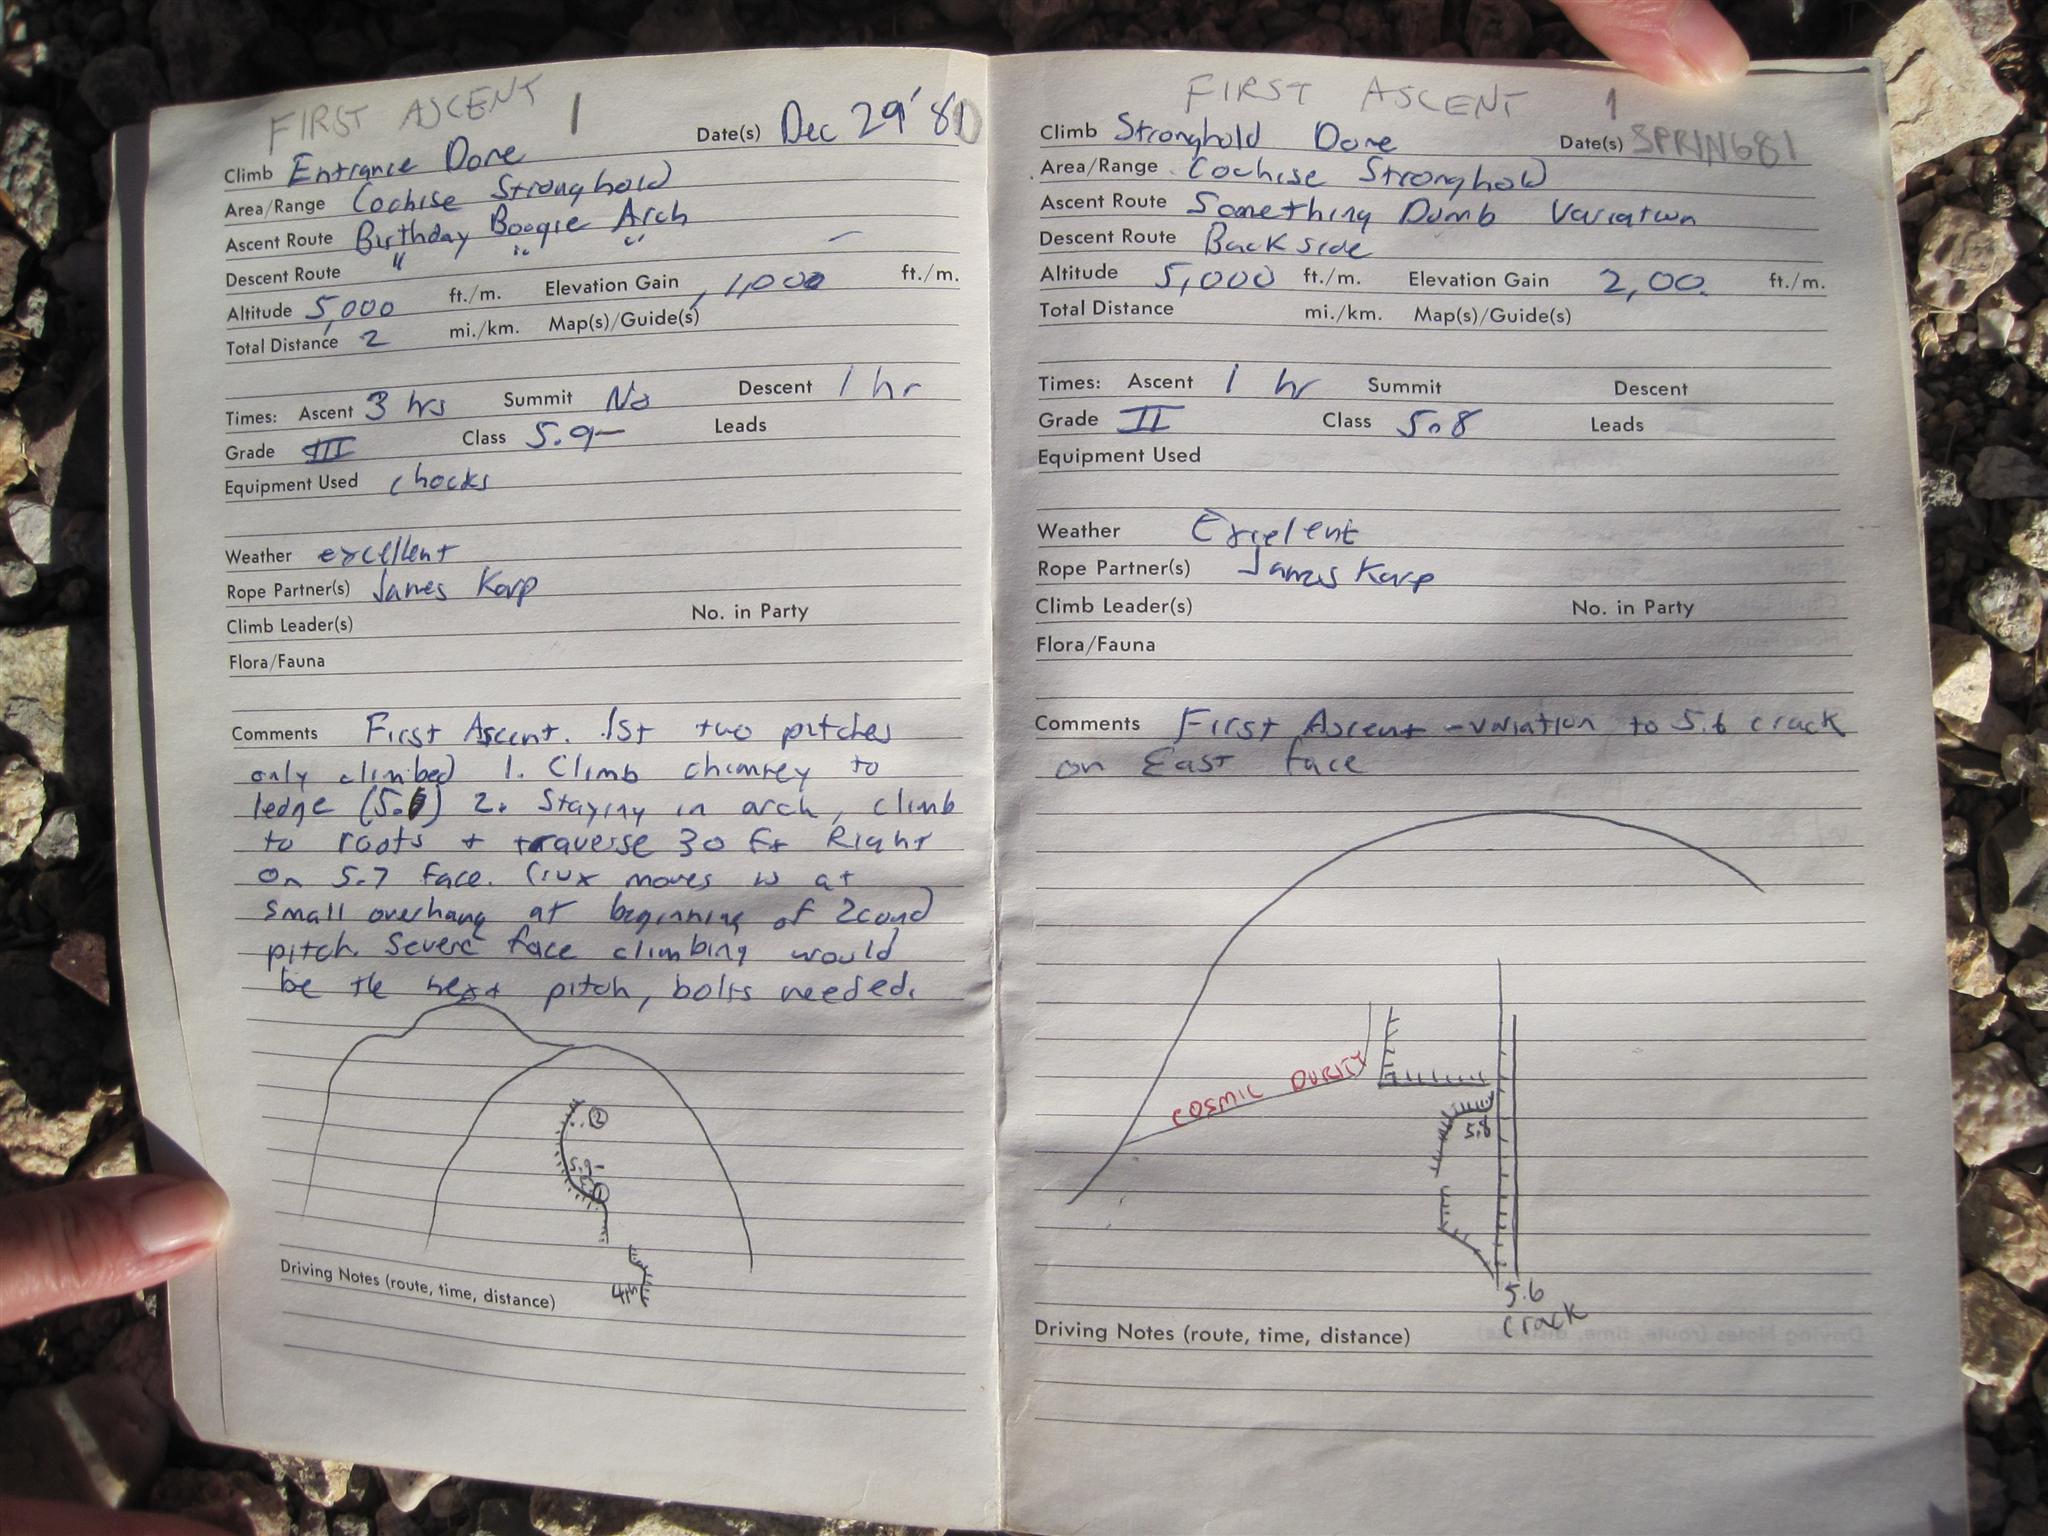 FIRST ASCENT 1
Date(s) Dec 29 '80
Climb Entrance Dome
Area/Range Cochise Stronghold
Ascent Route Birthday Boogie Arch
Descent Route " " "
Altitude 5,000 ft./m. Elevation Gain 1,000 ft./m.
Total Distance 2 mi./km. Map(s)/Guide(s)
Times: Ascent 3 hrs Summit No Descent 1 hr
Grade III Class 5.9- Leads
Equipment Used chocks
Weather excellent
Rope Partner(s) James Karp
Climb Leader(s) No. in Party
Flora/Fauna
Comments First Ascent. 1st two pitches
only climbed 1. Climb chimney to
ledge (5.) 2. Staying in arch, climb
to roots + traverse 30 ft Right
on 5.7 face. Crux moves is at
small overhang at beginning of 2cond
pitch. Severe face climbing would
be the next pitch, bolts needed.
2
5.9-
1
4th
Driving Notes (route, time, distance)
FIRST ASCENT 1
Climb Stronghold Dome Date(s) SPRING 81
Area/Range Cochise Stronghold
Ascent Route Something Dumb Variation
Descent Route Backside
Altitude 5,000 ft./m. Elevation Gain 2,00 ft./m.
Total Distance mi./km. Map(s)/Guide(s)
Times: Ascent 1 hr Summit Descent
Grade II Class 5.8 Leads
Equipment Used
Weather Excelent
Rope Partner(s) James Karp
Climb Leader(s) No. in Party
Flora/Fauna
Comments First Ascent - variation to 5.6 crack
on East face
COSMIC DURITY
5.8
5.6
crack
Driving Notes (route, time, distance)